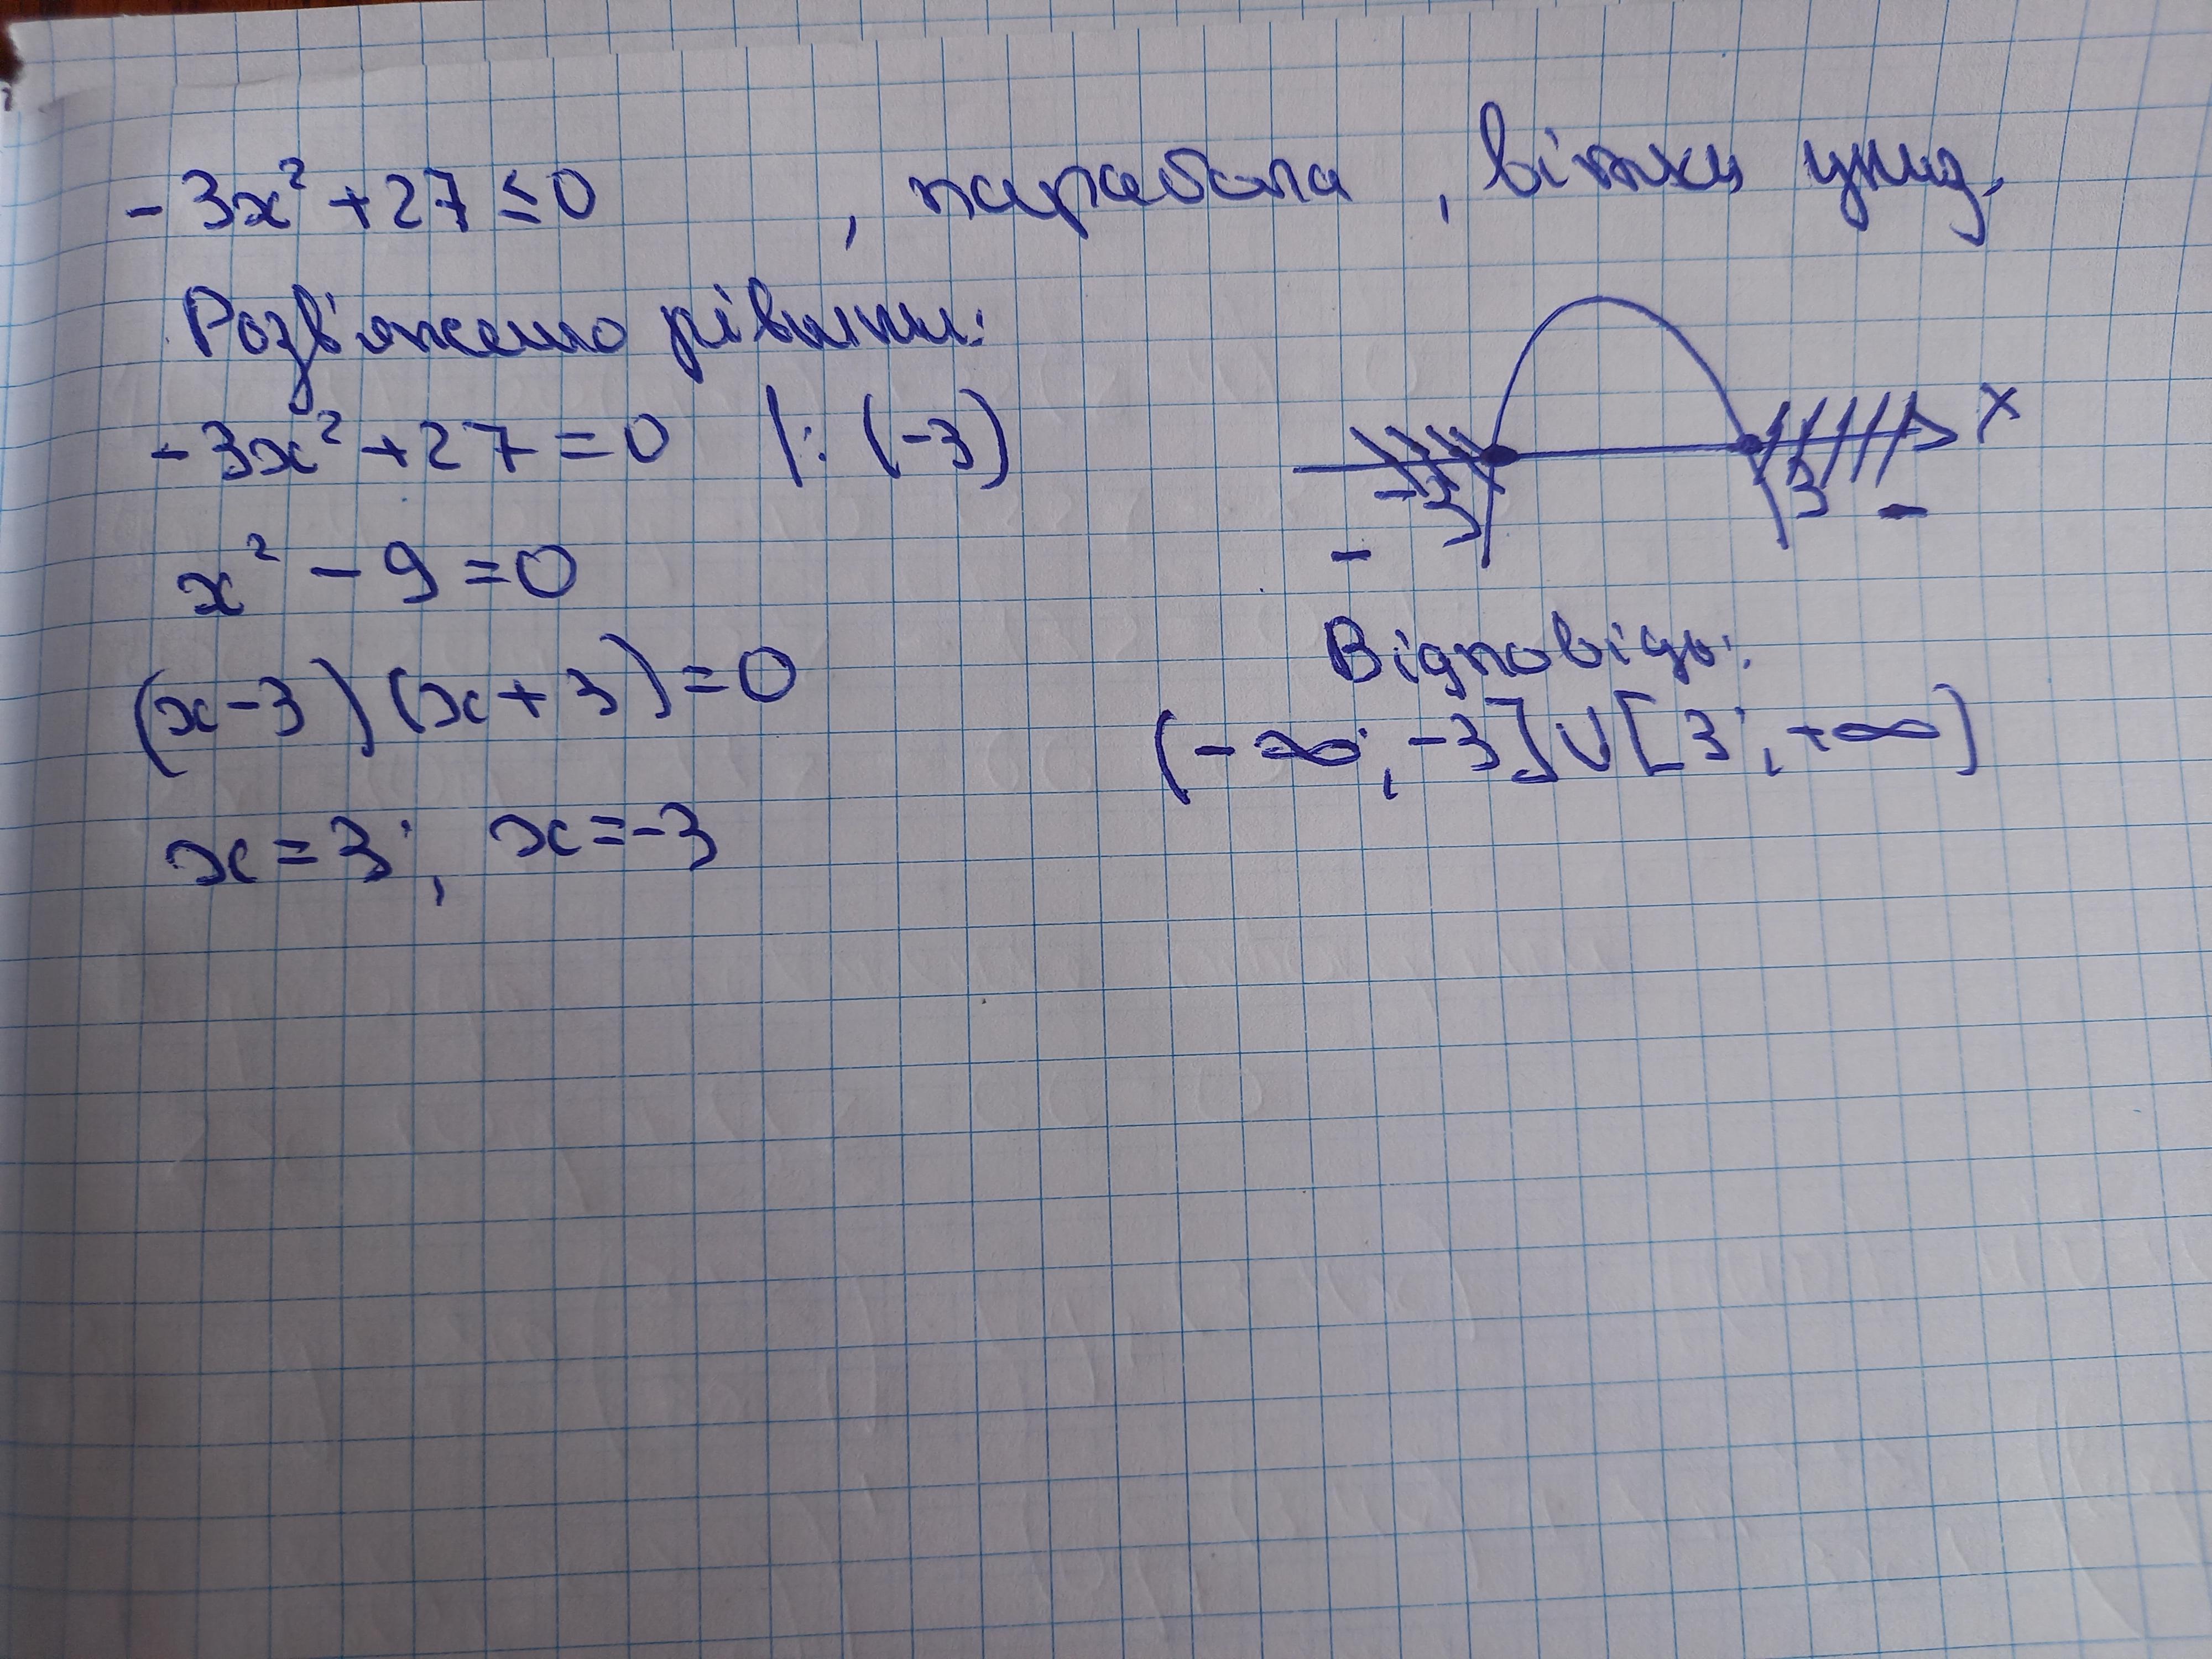 -3x² +27 ≤ 0 , парабола , вітки униз.
Розв'яжемо рівняння:
-3x² +27 = 0 |: (-3)
x² - 9 = 0
(x-3)(x+3) = 0
x = 3; x = -3
x
-3
3
-
-
Відповідь:
(-∞; -3]∪[3; +∞)